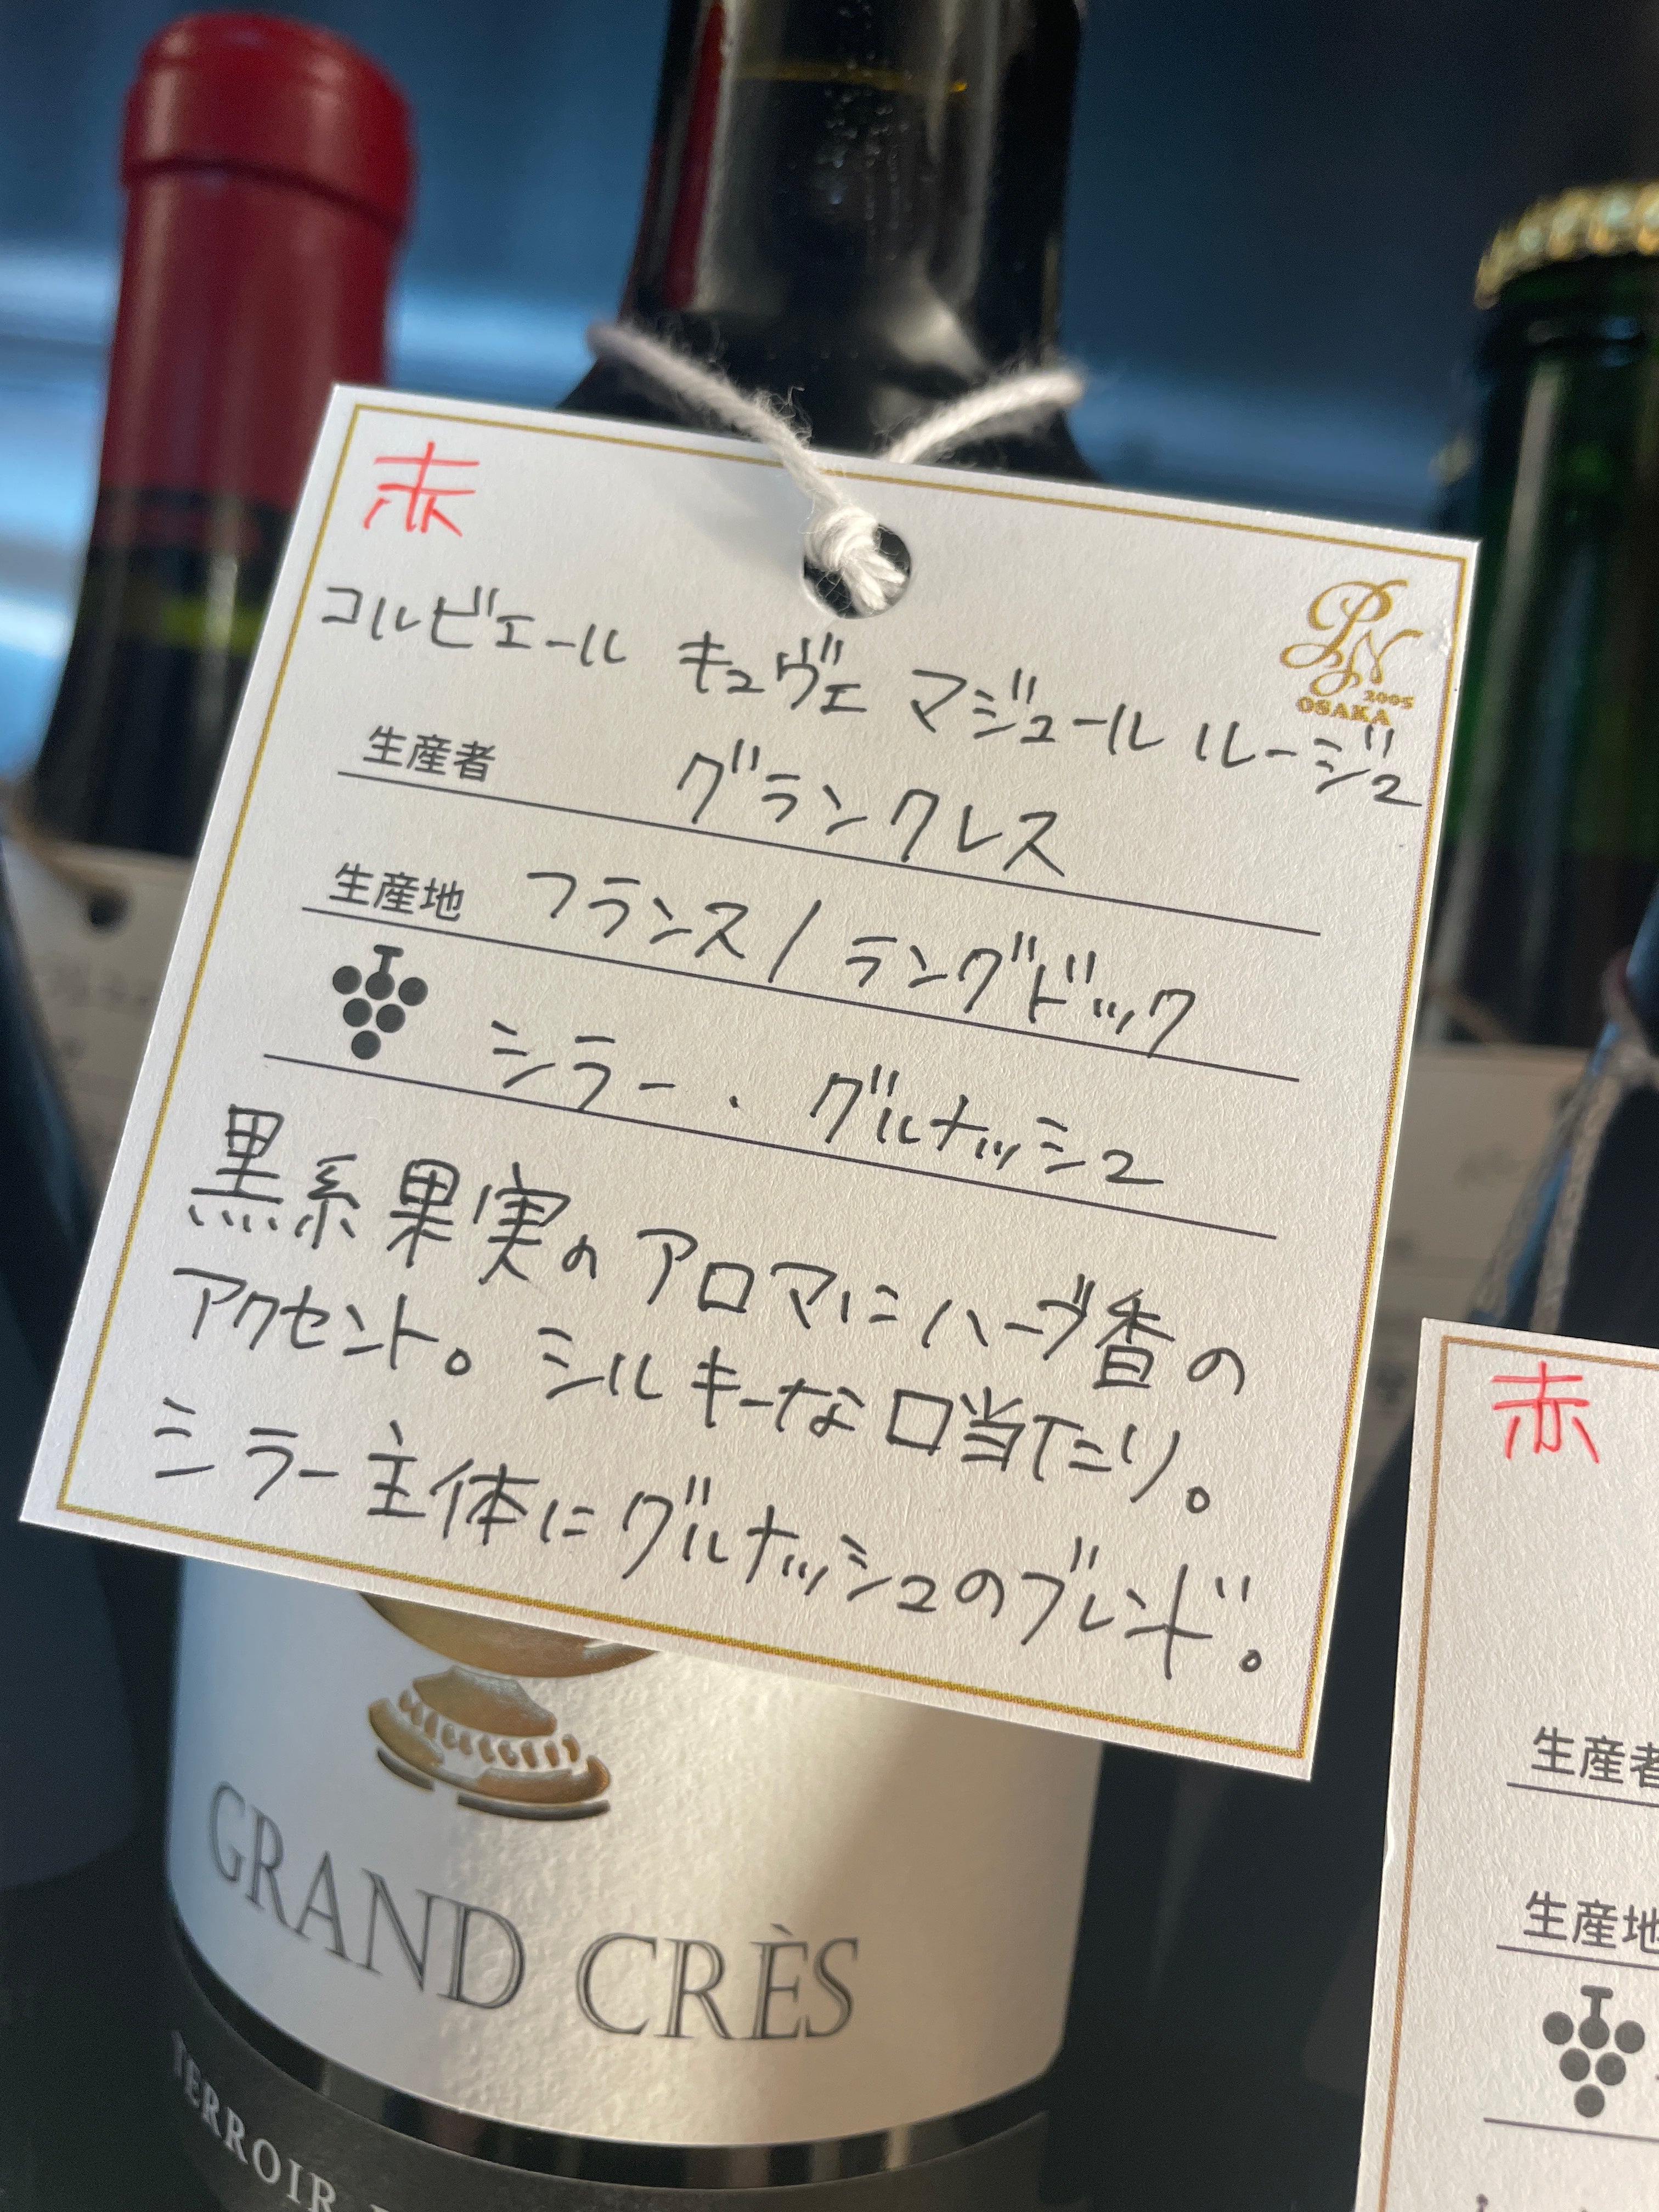 赤
コルビエール キュヴェ マジュール ルージュ
PN 2005
OSAKA
生産者 グランクレス
生産地 フランス/ラングドック
シラー・グルナッシュ
黒系果実のアロマにハーブ香の
アクセント。シルキーな口当たり。
シラー主体にグルナッシュのブレンド。
GRAND CRÈS
TERROIR
赤
生産者
生産地